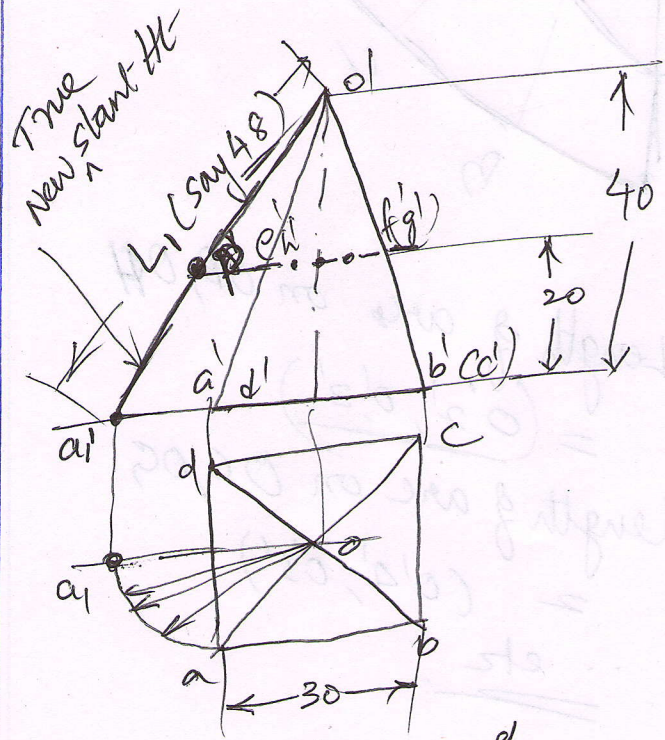 True
New slant Ht
L1 (say 48)
o'
40
e'h'
f'g'
20
a' d'
b'(c')
a1'
d
c
o
a1
a
b
30
d